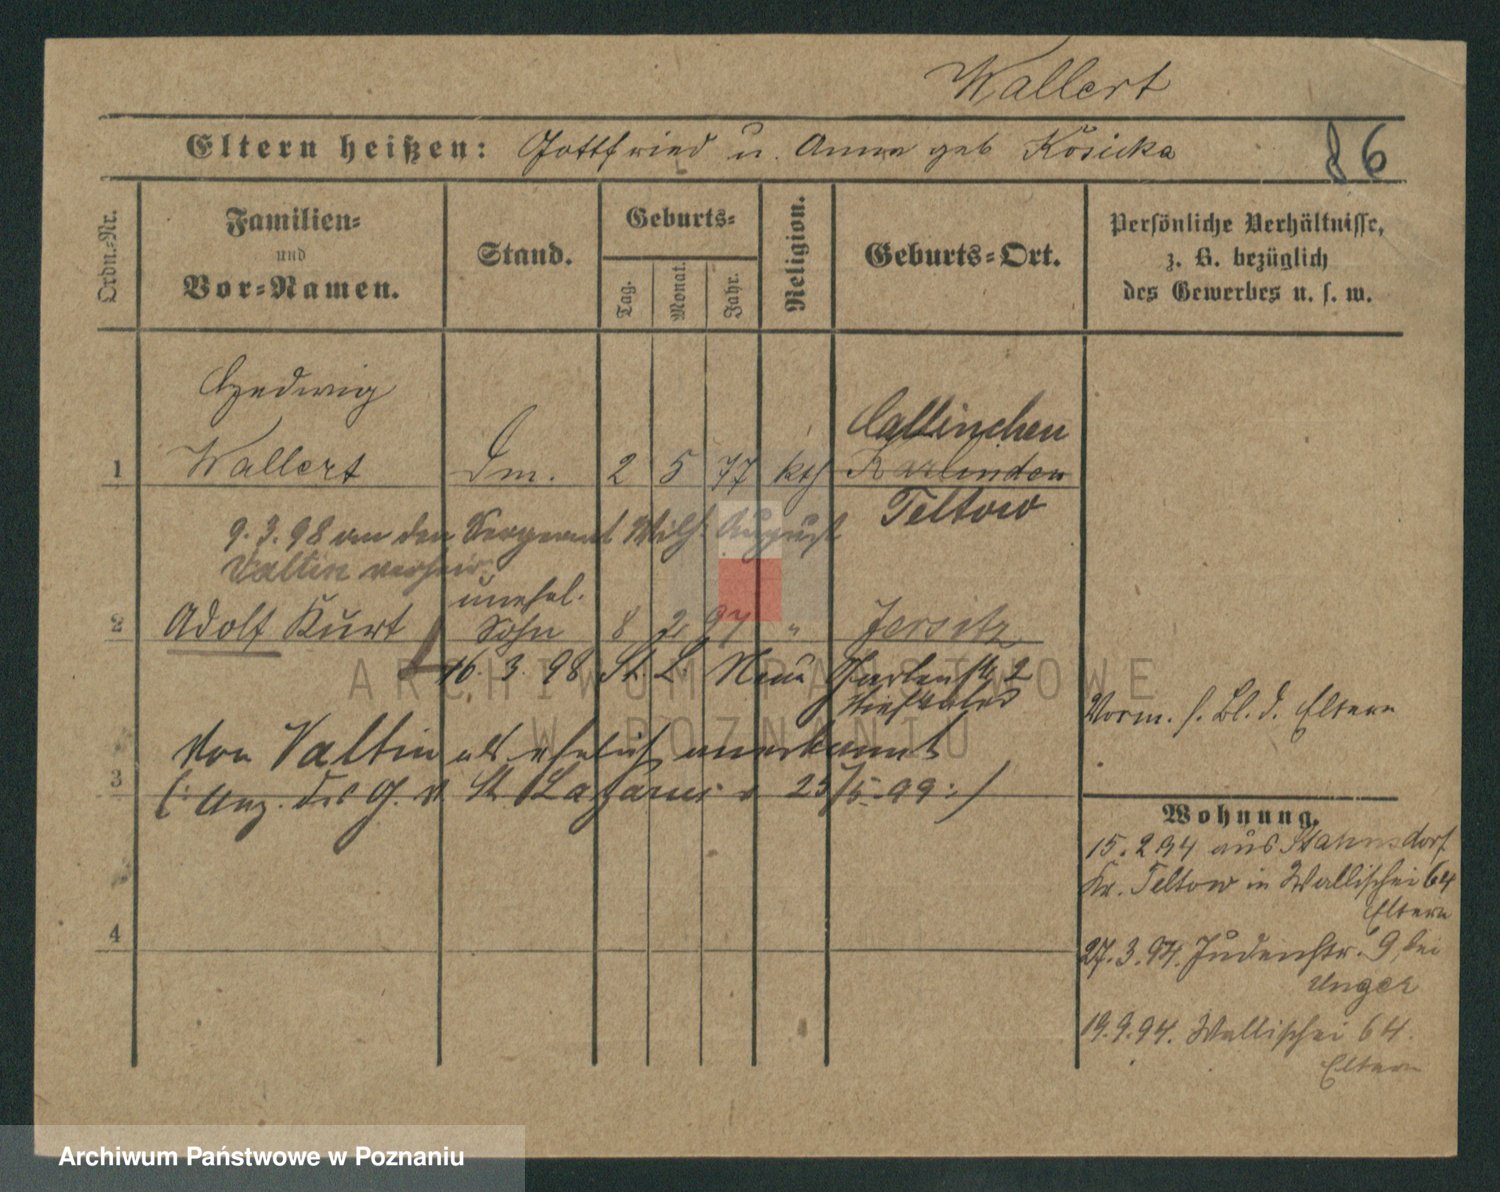 Wallert
Eltern heißen: Gottfried u. Anna geb Kosicka
86
Ordn.-Nr.
Familien-
und
Vor-Namen.
Stand.
Geburts-
Tag.
Monat.
Jahr.
Religion.
Geburts-Ort.
Persönliche Verhältnisse,
z. B. bezüglich
des Gewerbes u. s. w.
Hedwig
Callinchen
1 Wallert Dm. 2 5 77 kth
Teltow
9.3.98 an den Sergeant Wilh. August
Valtin verheir.
unehel.
2 Adolf Kurt Sohn 8 2 97 " Jersitz
16.3.98 St. L. Neue Gartenstr. 2
Stiefvater
Vorm. s. Bl. d. Eltern
von Valtin als ehelich anerkannt
3 (: Anz. des G. v St. Lazarus v 25/5. 99 :)
Wohnung.
15.2 94 aus Stahnsdorf
Kr. Teltow in Wallischei 64
Eltern
4
27.3.94. Judenstr. 9, bei
Unger
19.9.94. Wallischei 64.
Eltern
ARCHIWUM PAŃSTWOWE
W POZNANIU
Archiwum Państwowe w Poznaniu